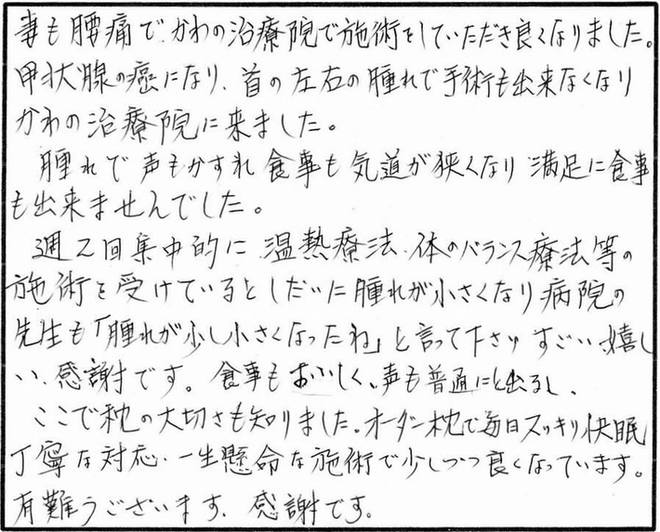 妻も腰痛で、かわの治療院で施術をしていただき良くなりました。
甲状腺の癌になり、首の左右の腫れで手術も出来なくなり
かわの治療院に来ました。
腫れで声もかすれ食事も気道が狭くなり満足に食事
も出来ませんでした。
週2回集中的に、温熱療法、体のバランス療法等の
施術を受けているとしだいに腫れが小さくなり病院の
先生も「腫れが少し小さくなったね」と言って下さりすごい嬉し
い、感謝です。食事もおいしく、声も普通にと出るし、
ここで枕の大切さも知りました。オーダー枕で毎日スッキリ快眠
丁寧な対応、一生懸命な施術で少しづつ良くなっています。
有難うございます、感謝です。